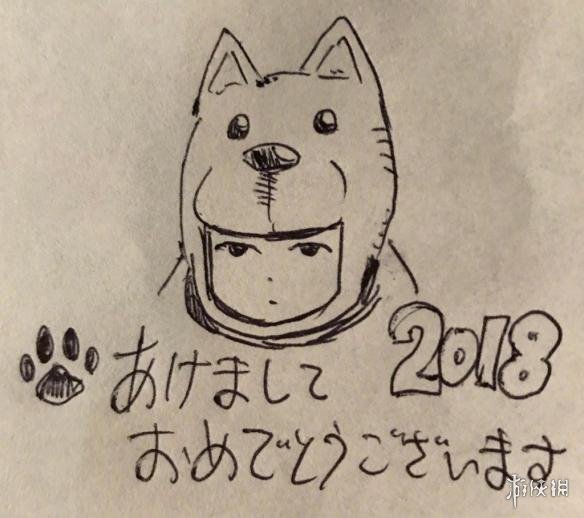 2018
あけまして
おめでとうございます
游侠网